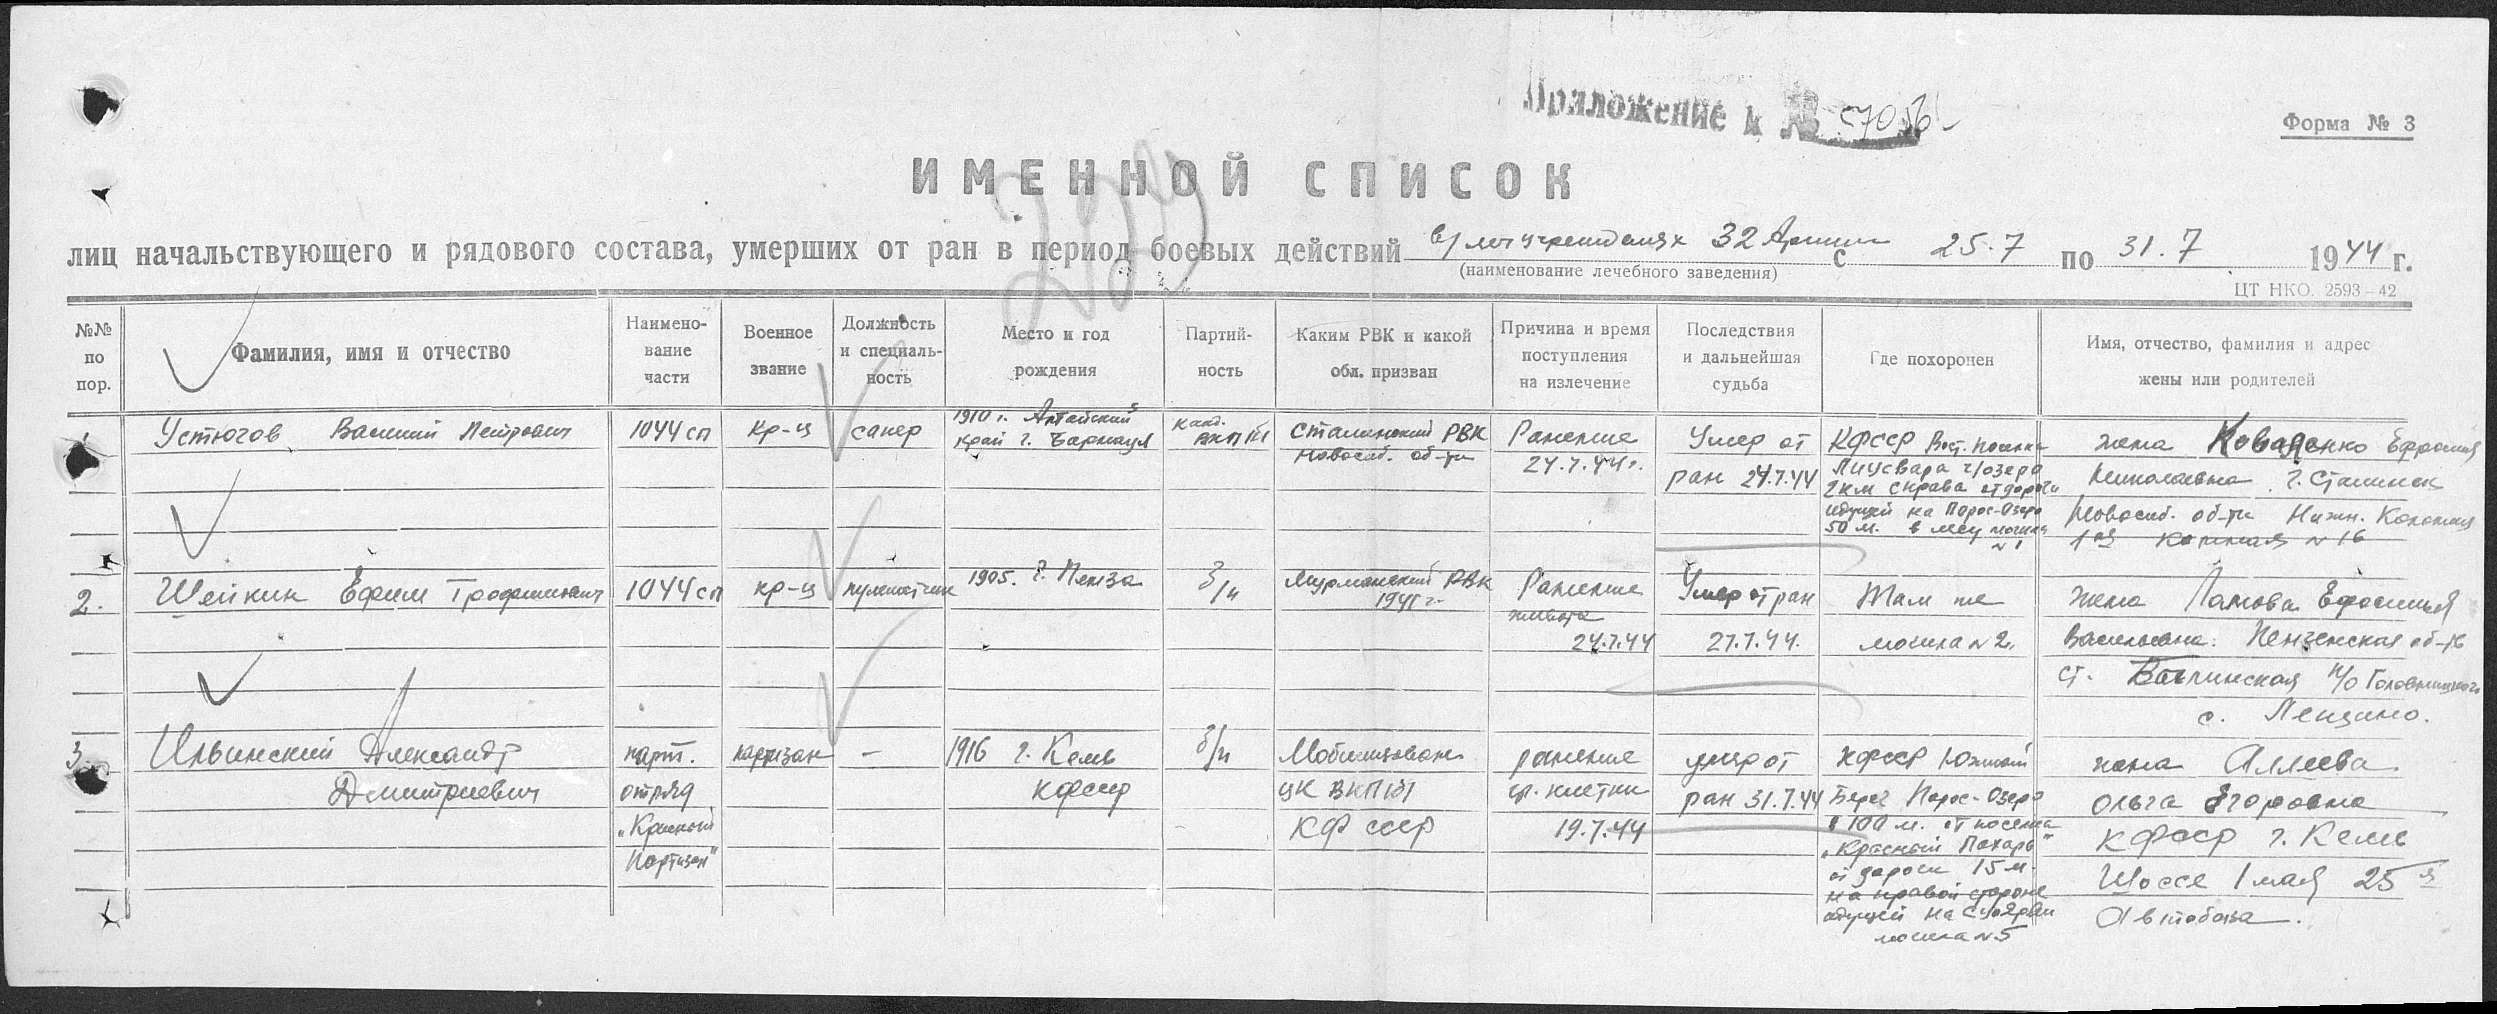 Приложение к № 57056
Форма № 3
ИМЕННОЙ СПИСОК
лиц начальствующего и рядового состава, умерших от ран в период боевых действий в/ леч учреждениях 32 Армии с 25.7 по 31.7 1944 г.
(наименование лечебного заведения)
ЦТ НКО. 2593—42
№№ по пор.
Фамилия, имя и отчество
Наимено-
вание
части
Военное
звание
Должность
и специаль-
ность
Место и год
рождения
Партий-
ность
Каким РВК и какой
обл. призван
Причина и время
поступления
на излечение
Последствия
и дальнейшая
судьба
Где похоронен
Имя, отчество, фамилия и адрес
жены или родителей
1
Устюгов Василий Петрович
1044 сп
кр-ц
сапер
1910 г. Алтайский
край г. Барнаул
канд.
ВКП(б)
Сталинский РВК
Новосиб. об-ти
Ранение
24.7.44 г.
Умер от
ран 24.7.44
КФССР Вост. поселка
Лицсвара ч/озеро
2 км справа от дороги
идущей на Порос-Озеро
50 м. в лесу могила
№ 1
жена Коваленко Ефросиния
Николаевна г. Сталинск
Новосиб. об-ти Нижн. Колония
1ая № 16
2.
Шейкин Ефим Трофимович
1044 сп
кр-ц
пулеметчик
1905. г. Пенза
б/п
Мурманский РВК
1941 г.
Ранение
живота
24.7.44
Умер от ран
27.7.44.
Там же
могила № 2.
жена Ламова Ефросинья
Васильевна. Пензенская об-ть
ст. п/о
с. Лещино.
3.
Ильинский Александр
Дмитриевич
парт.
отряд
„Красный
Партизан"
партизан
—
1916 г. Кемь
КФССР
б/п
Мобилизован
ЦК ВКП(б)
КФ ССР
ранение
гр. клетки
19.7.44
умер от
ран 31.7.44
КФССР Южный
Берег Порос-Озеро
в 100 м. от поселка
„Красный Пахарь"
от дороги 15 м.
на правой стороне
идущей на Суоярви
могила № 5
жена Аллеева
Ольга Егоровна
КФССР г. Кемь
Шоссе 1 мая 25 я
Автобаза.